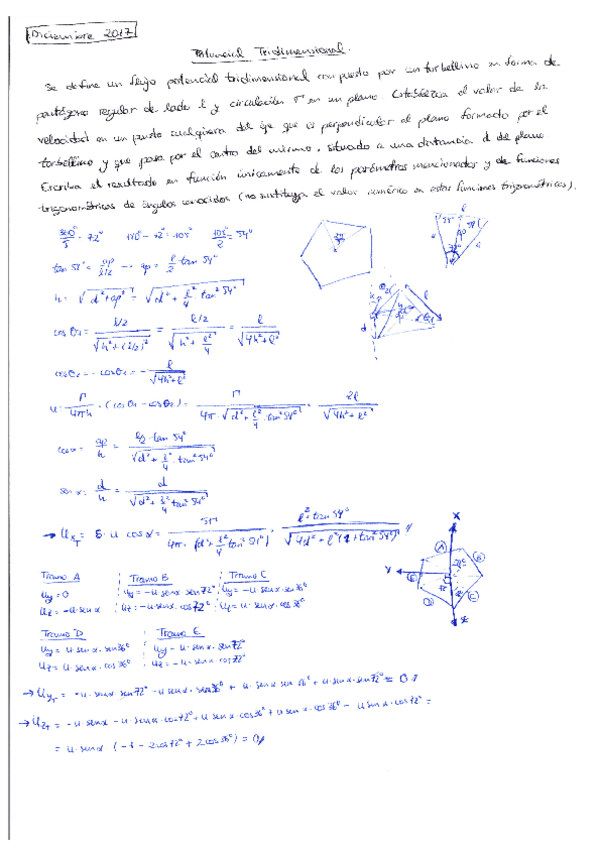 Diciembre 2017
Potencial Tridimensional.
Se define un flujo potencial tridimensional compuesto por un turbellino en forma de
pentágono regular de lado l y circulación Γ en un plano. Establezca el valor de la
velocidad en un punto cualquiera del eje que es perpendicular al plano formado por el
torbellino y que pasa por el centro del mismo, situado a una distancia d del plano
Escriba el resultado en función únicamente de los parámetros mencionados y de funciones
trigonométricas de ángulos conocidos (no sustituya el valor numérico en estas funciones trigonométricas).
360°/5 = 72° 180° - 72° = 108° 108°/2 = 54°
tan 54° = ap/(l/2) → ap = l/2 tan 54°
h = √(d² + ap²) = √(d² + l²/4 tan² 54°)
cos θ₁ = (l/2)/√(h² + (l/2)²) = (l/2)/√(h² + l²/4) = l/√(4h² + l²)
cos θ₂ = - cos θ₁ = - l/√(4h² + l²)
u = Γ/(4πh) · (cos θ₁ - cos θ₂) = Γ/(4π · √(d² + l²/4 tan² 54°)) · 2l/√(4h² + l²)
cos α = ap/h = (l/2 · tan 54°)/√(d² + l²/4 · tan² 54°)
sen α = d/h = d/√(d² + l²/4 · tan² 54°)
→ U_xT = 5 · u cos α = 5Γ/(4π · (d² + l²/4 tan² 54°)) · l² tan 54°/√(4d² + l²(1 + tan² 54°))
Tramo A Tramo B Tramo C
Uy = 0 Uy = -u · sen α · sen 72° Uy = -u · sen α · sen 36°
Uz = -u · sen α Uz = -u · sen α · cos 72° Uz = u · sen α · cos 36°
Tramo D Tramo E
Uy = u · sen α · sen 36° Uy = u · sen α · sen 72°
Uz = u · sen α · cos 36° Uz = -u · sen α · cos 72°
→ U_yT = -u · sen α · sen 72° - u · sen α · sen 36° + u · sen α · sen 36° + u · sen α · sen 72° = 0
→ U_zT = -u · sen α - u · sen α · cos 72° + u · sen α · cos 36° + u · sen α · cos 36° - u · sen α · cos 72° =
= u · sen α (-1 - 2 cos 72° + 2 cos 36°) = 0